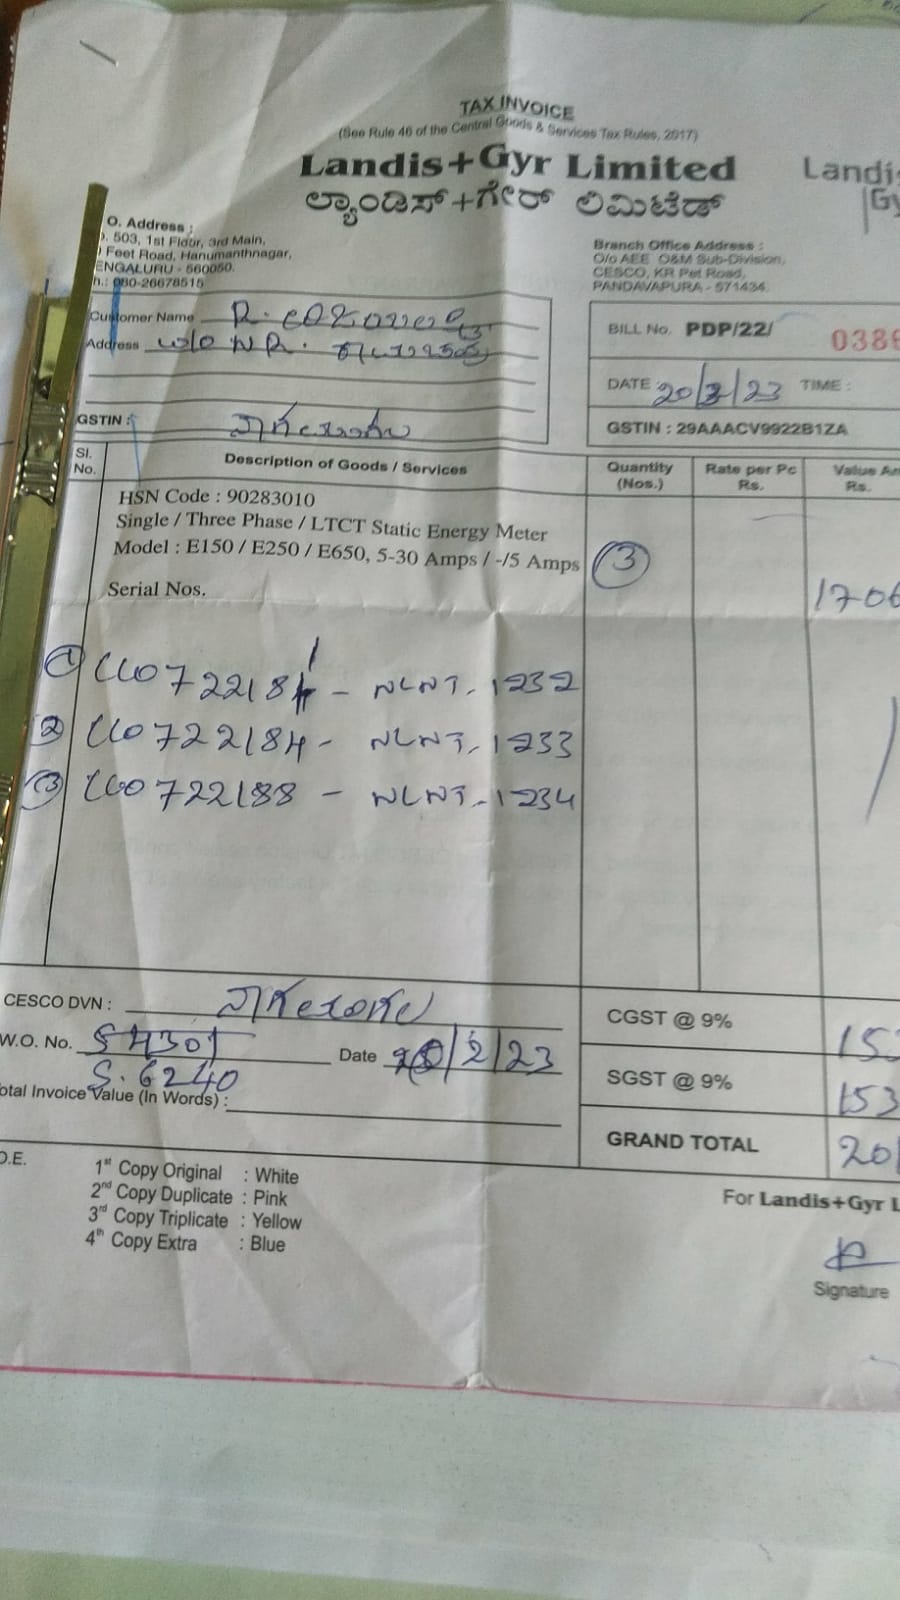 TAX INVOICE
(See Rule 46 of the Central Goods & Services Tax Rules, 2017)
Landis+Gyr Limited
Landis
Gy
ಲ್ಯಾಂಡಿಸ್+ಗೇರ್ ಲಿಮಿಟೆಡ್
O. Address :
503, 1st Floor, 3rd Main,
Feet Road, Hanumanthnagar,
ENGALURU - 560050.
h.: 080-26678515
Branch Office Address :
O/o AEE O&M Sub-Division,
CESCO, KR Pet Road,
PANDAVAPURA - 571434.
Customer Name R.
Address W/O N.R.
GSTIN :
BILL No. PDP/22/ 0386
DATE : 20/2/23 TIME :
GSTIN : 29AAACV9922B1ZA
Sl. No. Description of Goods / Services Quantity (Nos.) Rate per Pc Rs. Value Rs.
HSN Code : 90283010
Single / Three Phase / LTCT Static Energy Meter
Model : E150 / E250 / E650, 5-30 Amps / -/5 Amps 3
Serial Nos. 1706
1 -1232
2 722184 - 1233
3 722188 - 1234
CESCO DVN :
W.O. No. Date 20/2/23
S. 6240
otal Invoice Value (In Words) :
CGST @ 9% 153
SGST @ 9% 153
GRAND TOTAL 201
O.E.
1st Copy Original : White
2nd Copy Duplicate : Pink
3rd Copy Triplicate : Yellow
4th Copy Extra : Blue
For Landis+Gyr L
Signature